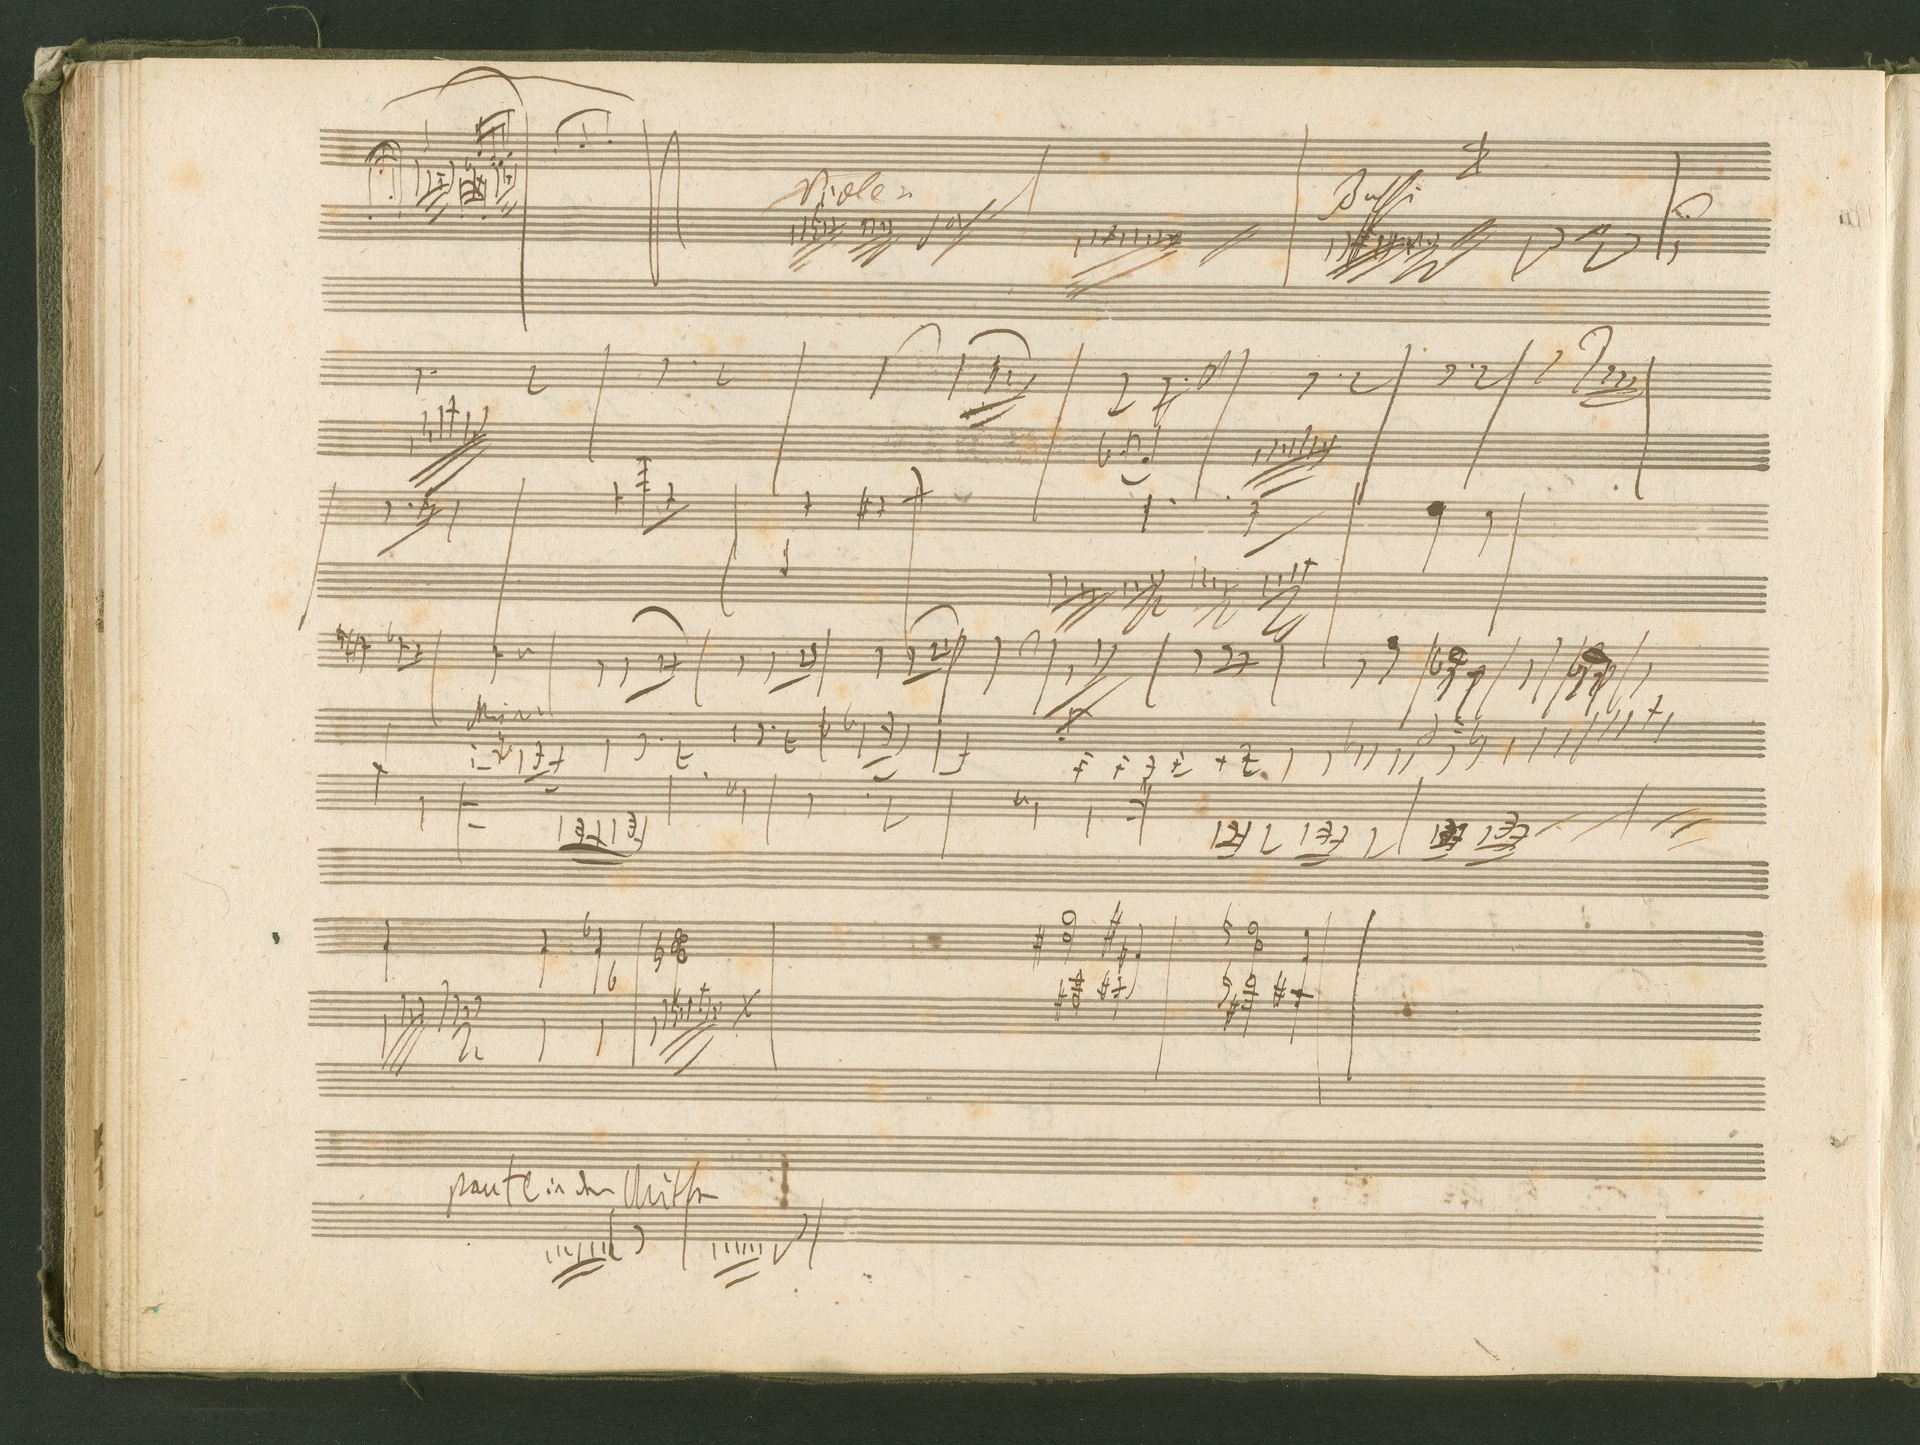 Violen
Bassi
Min
pauke in der Mitte